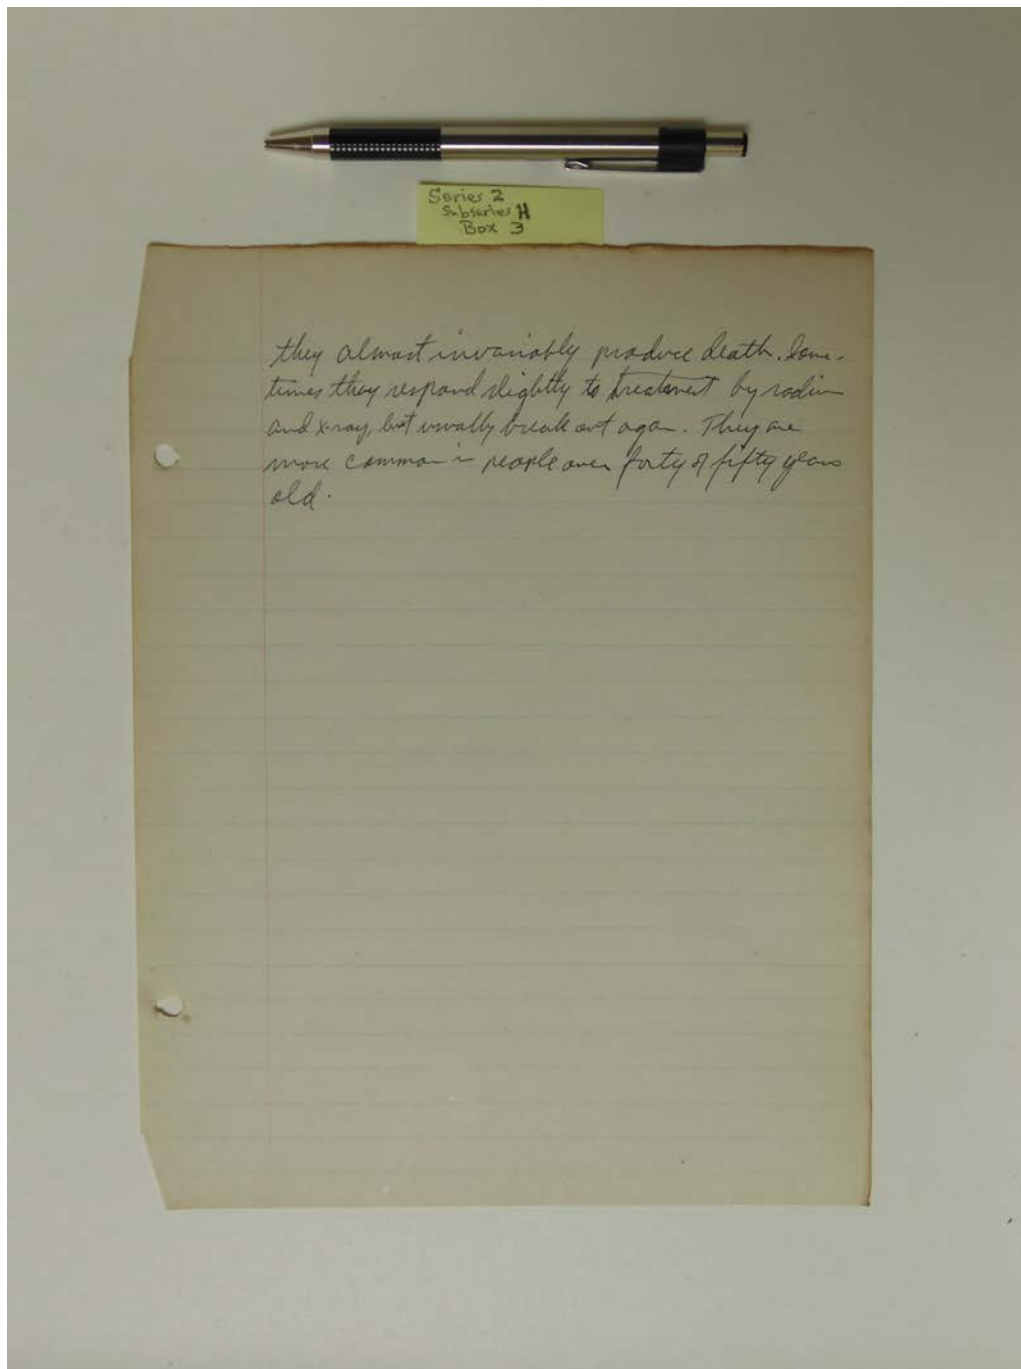 Series 2
Subseries H
Box 3
they almost invariably produce death. Some-
times they respond slightly to treatment by radium
and x-ray, but usually break out again. They are
more common in people over forty or fifty years
old.